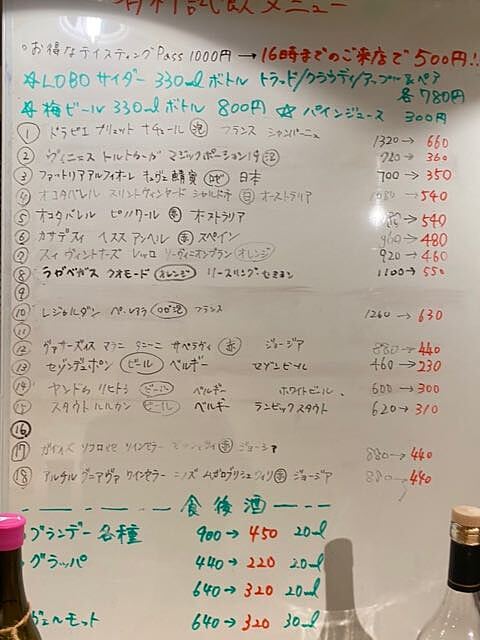 有料試飲メニュー
◦お得なテイスティングPass 1000円 → 16時までのご来店で 500円!!
☆LOBO サイダー 330mlボトル トラッド/クラウディ/アップル&ペア 各780円
☆梅ビール 330mlボトル 800円 ☆パインジュース 300円
① ドラピエ ブリュット ナチュール 泡 フランス シャンパーニュ 1320→660
② ヴィニース トルトゥーガ マジックポーション19 泡 720→360
③ ファットリアアルフィオーレ キュヴェ鯖寅 ロゼ 日本 700→350
④ オコタバレル スリントヴィンヤード シャルドネ 白 オーストラリア 1080→540
⑤ オコタバレル ピノノワール 赤 オーストラリア 1080→540
⑥ カサデスィ ヘススアンヘル 赤 スペイン 960→480
⑦ スィヴィントナーズ レッロ ソーヴィニオンブラン オレンジ 920→460
⑧ ラザベガバス ウオモード オレンジ リースリング セミヨン 1100→550
⑨
⑩ レジャルダン ペーレアラ ロゼ泡 フランス 1260→630
⑪
⑫ ヴァザーズィス マラニ タニーニ サペラヴィ 赤 ジョージア 880→440
⑬ セゾンデュポン ビール ベルギー セゾンビール 460→230
⑭ ヤンドゥ リヒトゥ ビール ベルギー ホワイトビール 600→300
⑮ スタウト ルルカン ビール ベルギー ランビックスタウト 620→310
⑯
⑰ ワインセラー 赤 ジョージア 880→440
⑱ アルチル グニアヴァ ワインセラー 赤 ジョージア 880→440
食後酒
・ブランデー各種 900→450 20ml
・グラッパ 440→220 20ml
640→320 20ml
ヴェルモット 640→320 30ml